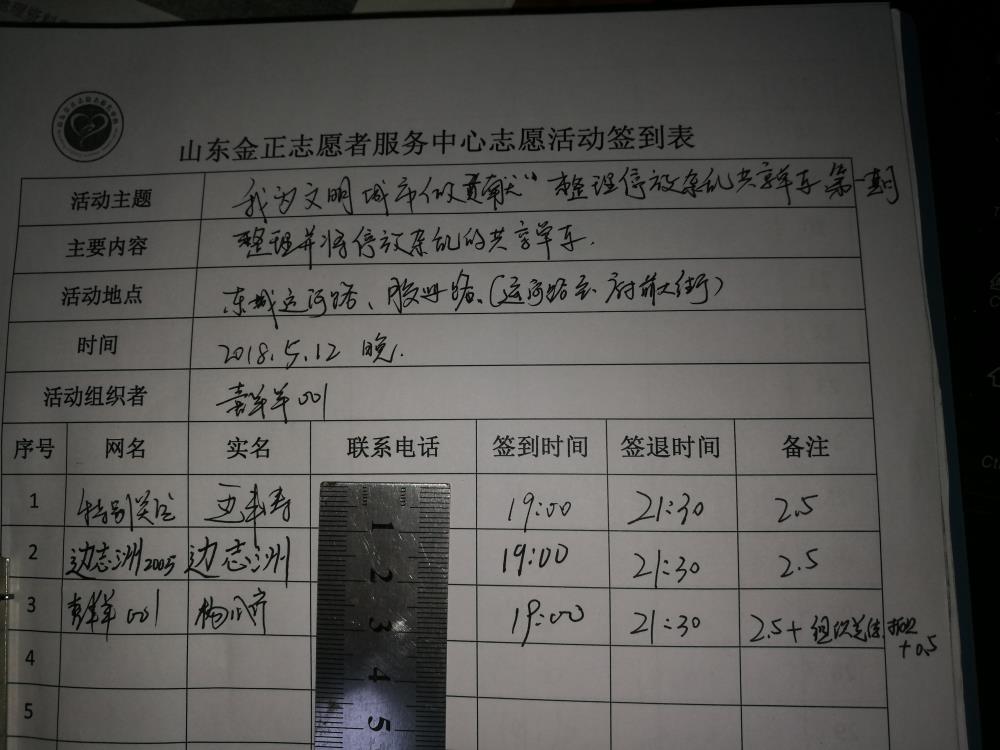 山东金正志愿者服务中心志愿活动签到表
活动主题 我为文明城市做贡献"整理停放杂乱共享单车第一期
主要内容 整理并将停放杂乱的共享单车.
活动地点 东城运河路、胶州路、(运河路至府前大街)
时间 2018.5.12 晚.
活动组织者 喜羊羊001
序号 网名 实名 联系电话 签到时间 签退时间 备注
1 特别关注 19:00 21:30 2.5
2 边志洲2005 边志洲 19:00 21:30 2.5
3 喜羊羊001 19:00 21:30 2.5+组织总结
+0.5
4
5
1 2 3 4 5